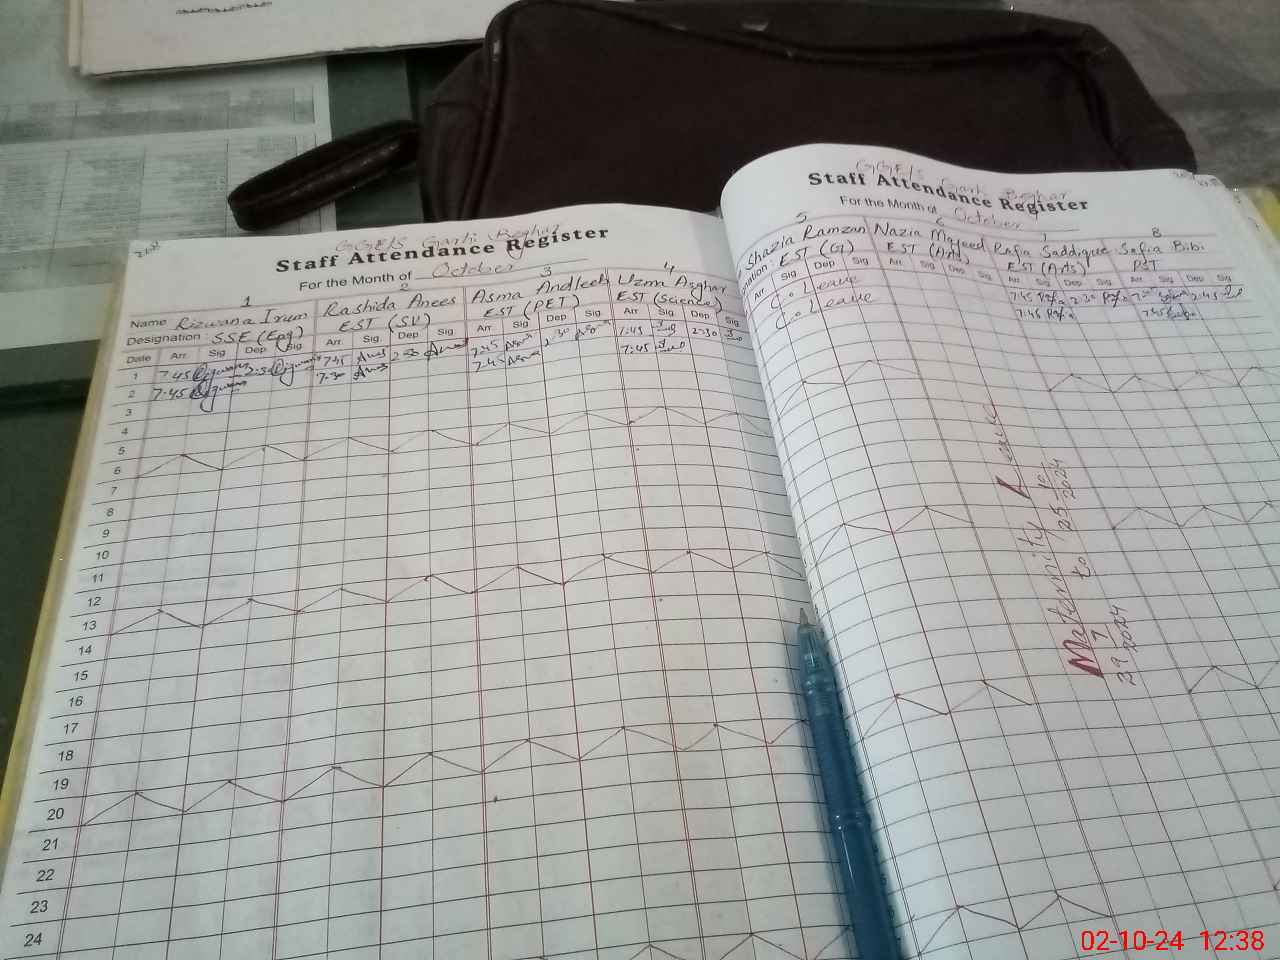 GGE/S Garhi Reghar
Staff Attendance Register
For the Month of October
1 2 3 4
Name Rizwana Irum Rashida Anees Asma Andleeb Uzma Asghar
Designation: SSE (Eng) EST (SV) EST (PET) EST (Science)
Date Arr. Sig Dep Sig Arr. Sig Dep Sig Arr Sig Dep Sig Arr Sig Dep Sig
1 7:45 2:30 7:45 2:30 7:45 2:30 7:45 2:30
2 7:45 7:30 7:45 7:45
3
4
5
6
7
8
9
10
11
12
13
14
15
16
17
18
19
20
21
22
23
24
GGE/S Garhi Reghar
Staff Attendance Register
For the Month of October
5 6 7 8
Shazia Ramzan Nazia Majeed Rafia Saddique Safia Bibi
EST (G) EST (Arts) EST (Arts) PST
Arr Sig Dep Sig Arr. Sig Dep Sig Arr. Sig Dep Sig Arr. Sig Dep Sig
C. Leave 7:45 2:30 7:45 2:45
C. Leave 7:45 7:45
Maternity Leave
29/7/2024 to 25/10/2024
02-10-24 12:38